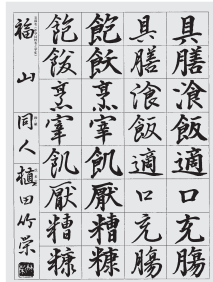 具膳湌飯適口充腸
具膳湌飯適口充腸
飽飫烹宰飢厭糟糠
飽飫烹宰飢厭糟糠
福山 同人 植田竹栄